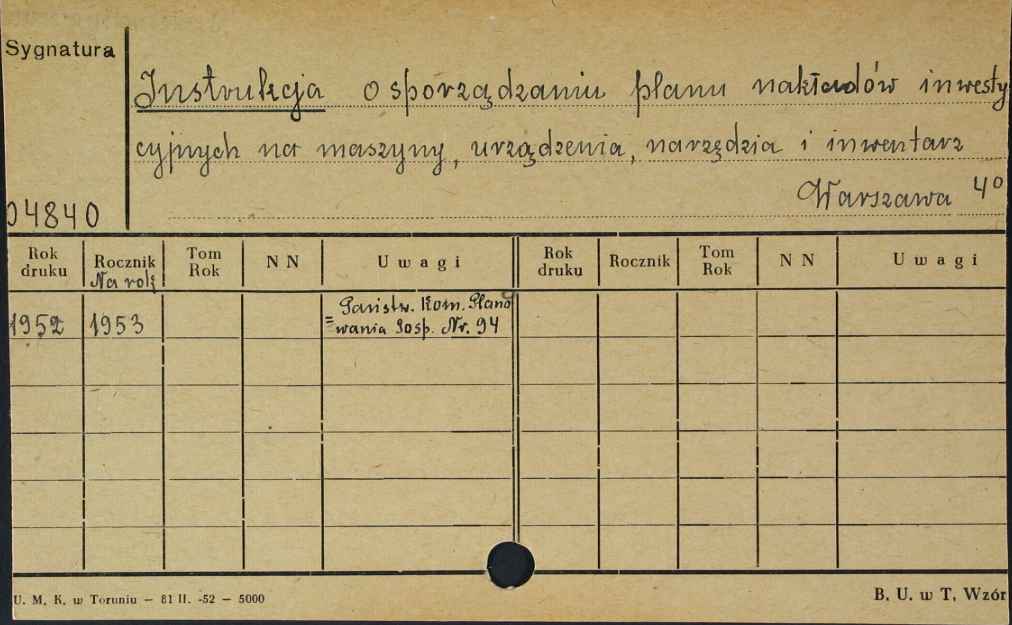 Sygnatura
Instrukcja o sporządzaniu planu nakładów inwesty
cyjnych na maszyny, urządzenia, narzędzia i inwentarz
Warszawa 4°
04840
Rok druku Rocznik Tom Rok N N Uwagi Rok druku Rocznik Tom Rok N N Uwagi
Na rok
1952 1953 Państw. Kom. Plano
= wania Gosp. Nr. 94
U. M. K. w Toruniu — 81 II. -52 — 5000 B. U. w T. Wzór